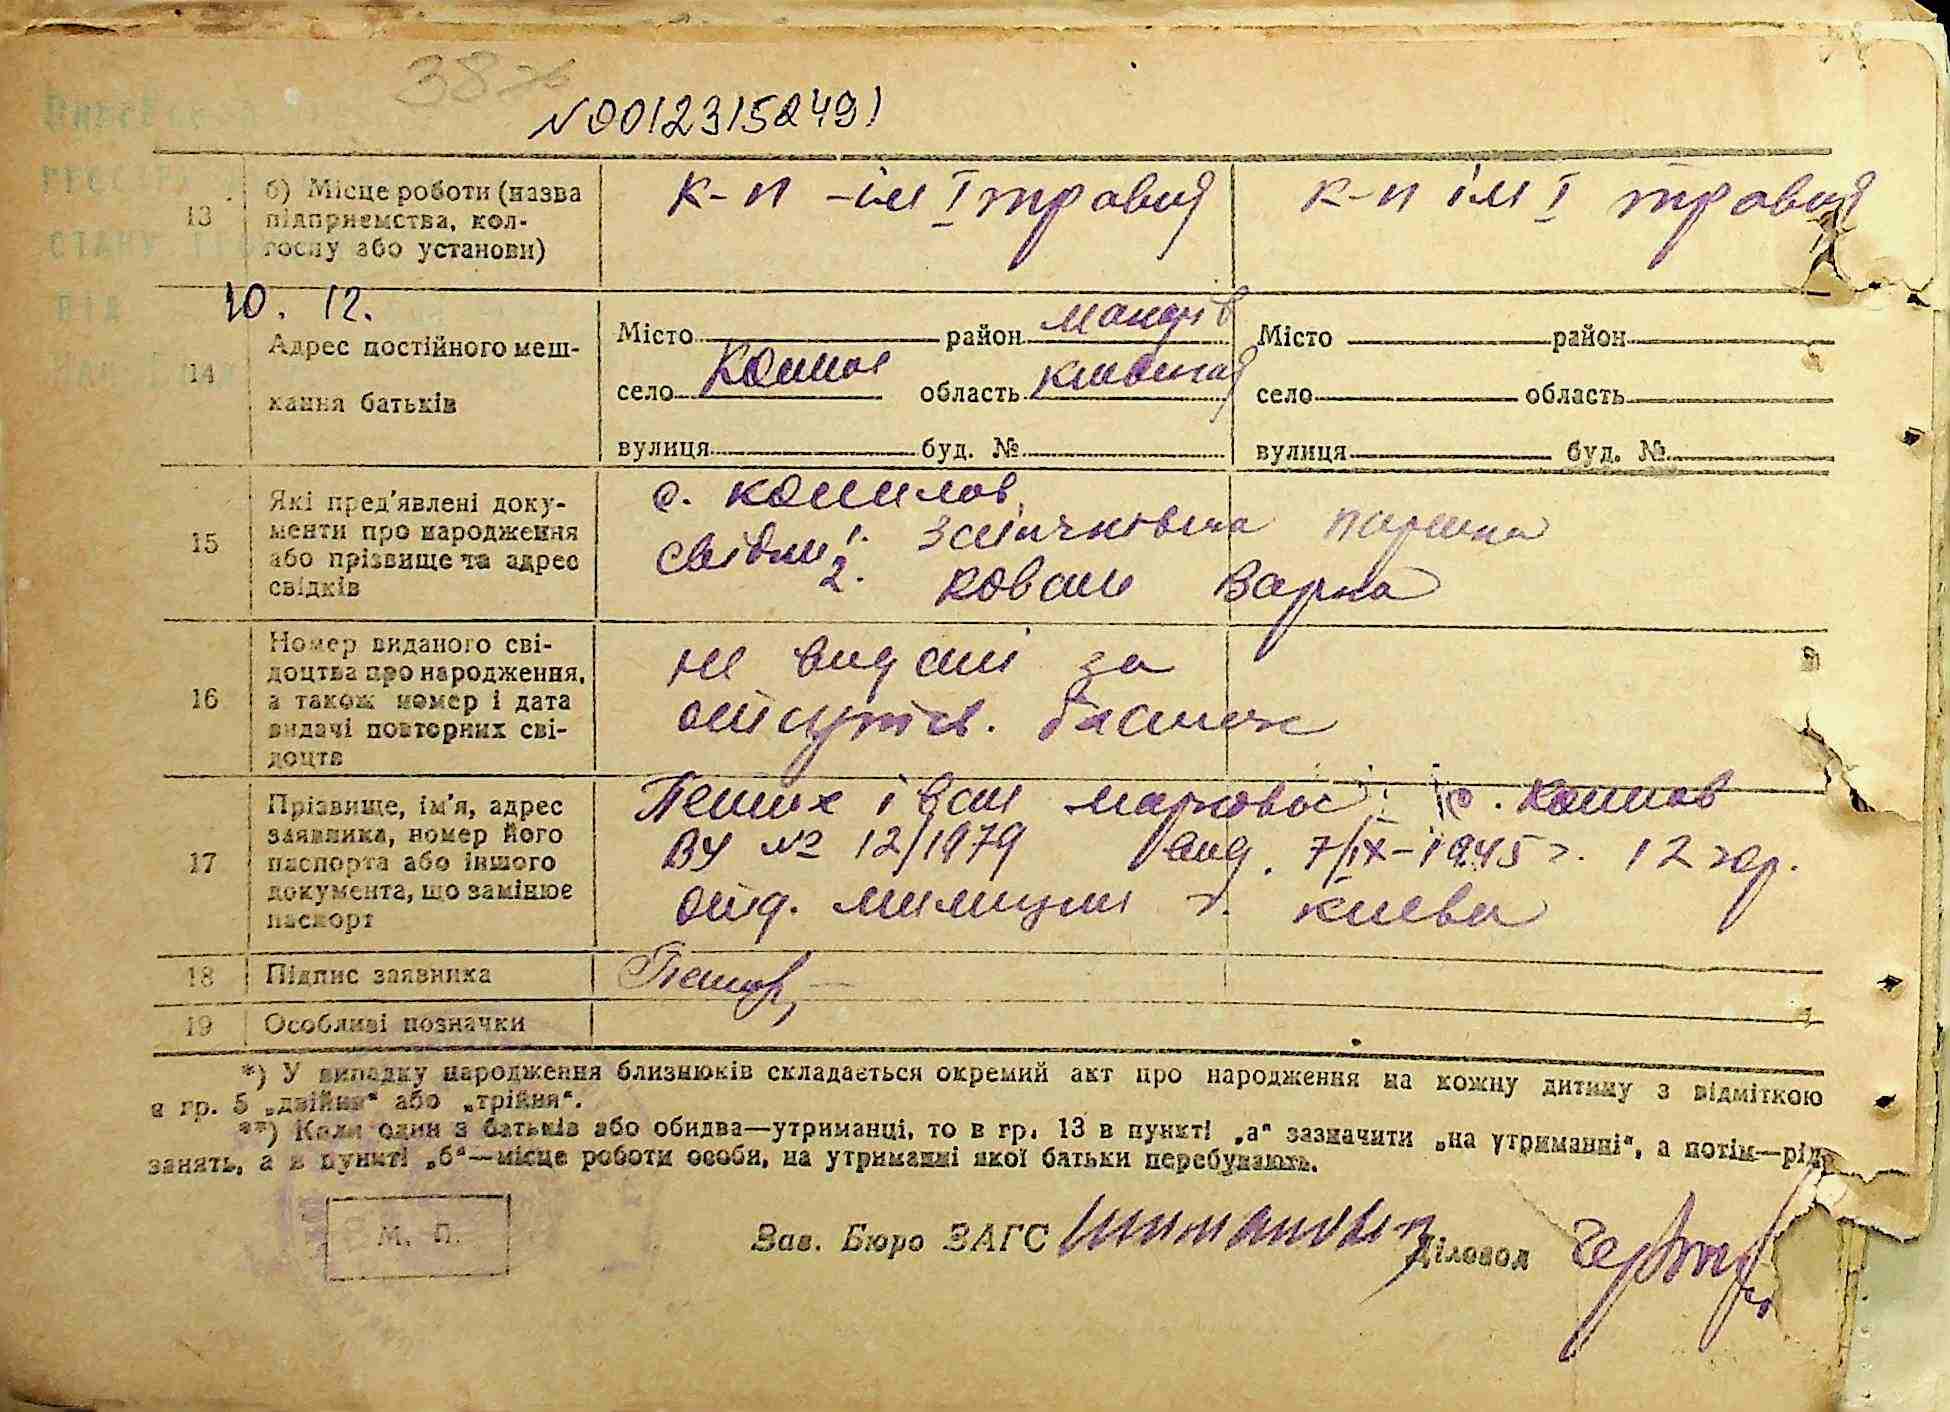 №00123152491
13
б) Місце роботи (назва підприємства, колгоспу або установи)
к-п -ім I травня
к-п ім I травня
10. 12.
14
Адрес постійного мешкання батьків
Місто район
село область київська
вулиця буд. №
Місто район
село область
вулиця буд. №
15
Які пред'явлені документи про народження або прізвище та адрес свідків
с.
свідки 1.
2. Коваль Варка
16
Номер виданого свідоцтва про народження, а також номер і дата видачі повторних свідоцтв
не видані за
отсутств.
17
Прізвище, ім'я, адрес заявника, номер його паспорта або іншого документа, що замінює паспорт
Іван Маркович с.
ВУ № 12/1979 вид. 7/IX-1945 г. 12 гор.
отд. милиции г. Киева
18
Підпис заявника
19
Особливі позначки
*) У випадку народження близнюків складається окремий акт про народження на кожну дитину з відміткою
в гр. 5 „двійня“ або „трійня“.
**) Коли один з батьків або обидва—утриманці, то в гр. 13 в пункті „а“ зазначити „на утриманні“, а потім—рід
занять, а в пункті „б“—місце роботи особи, на утриманні якої батьки перебувають.
М. П.
Зав. Бюро ЗАГС
Діловод